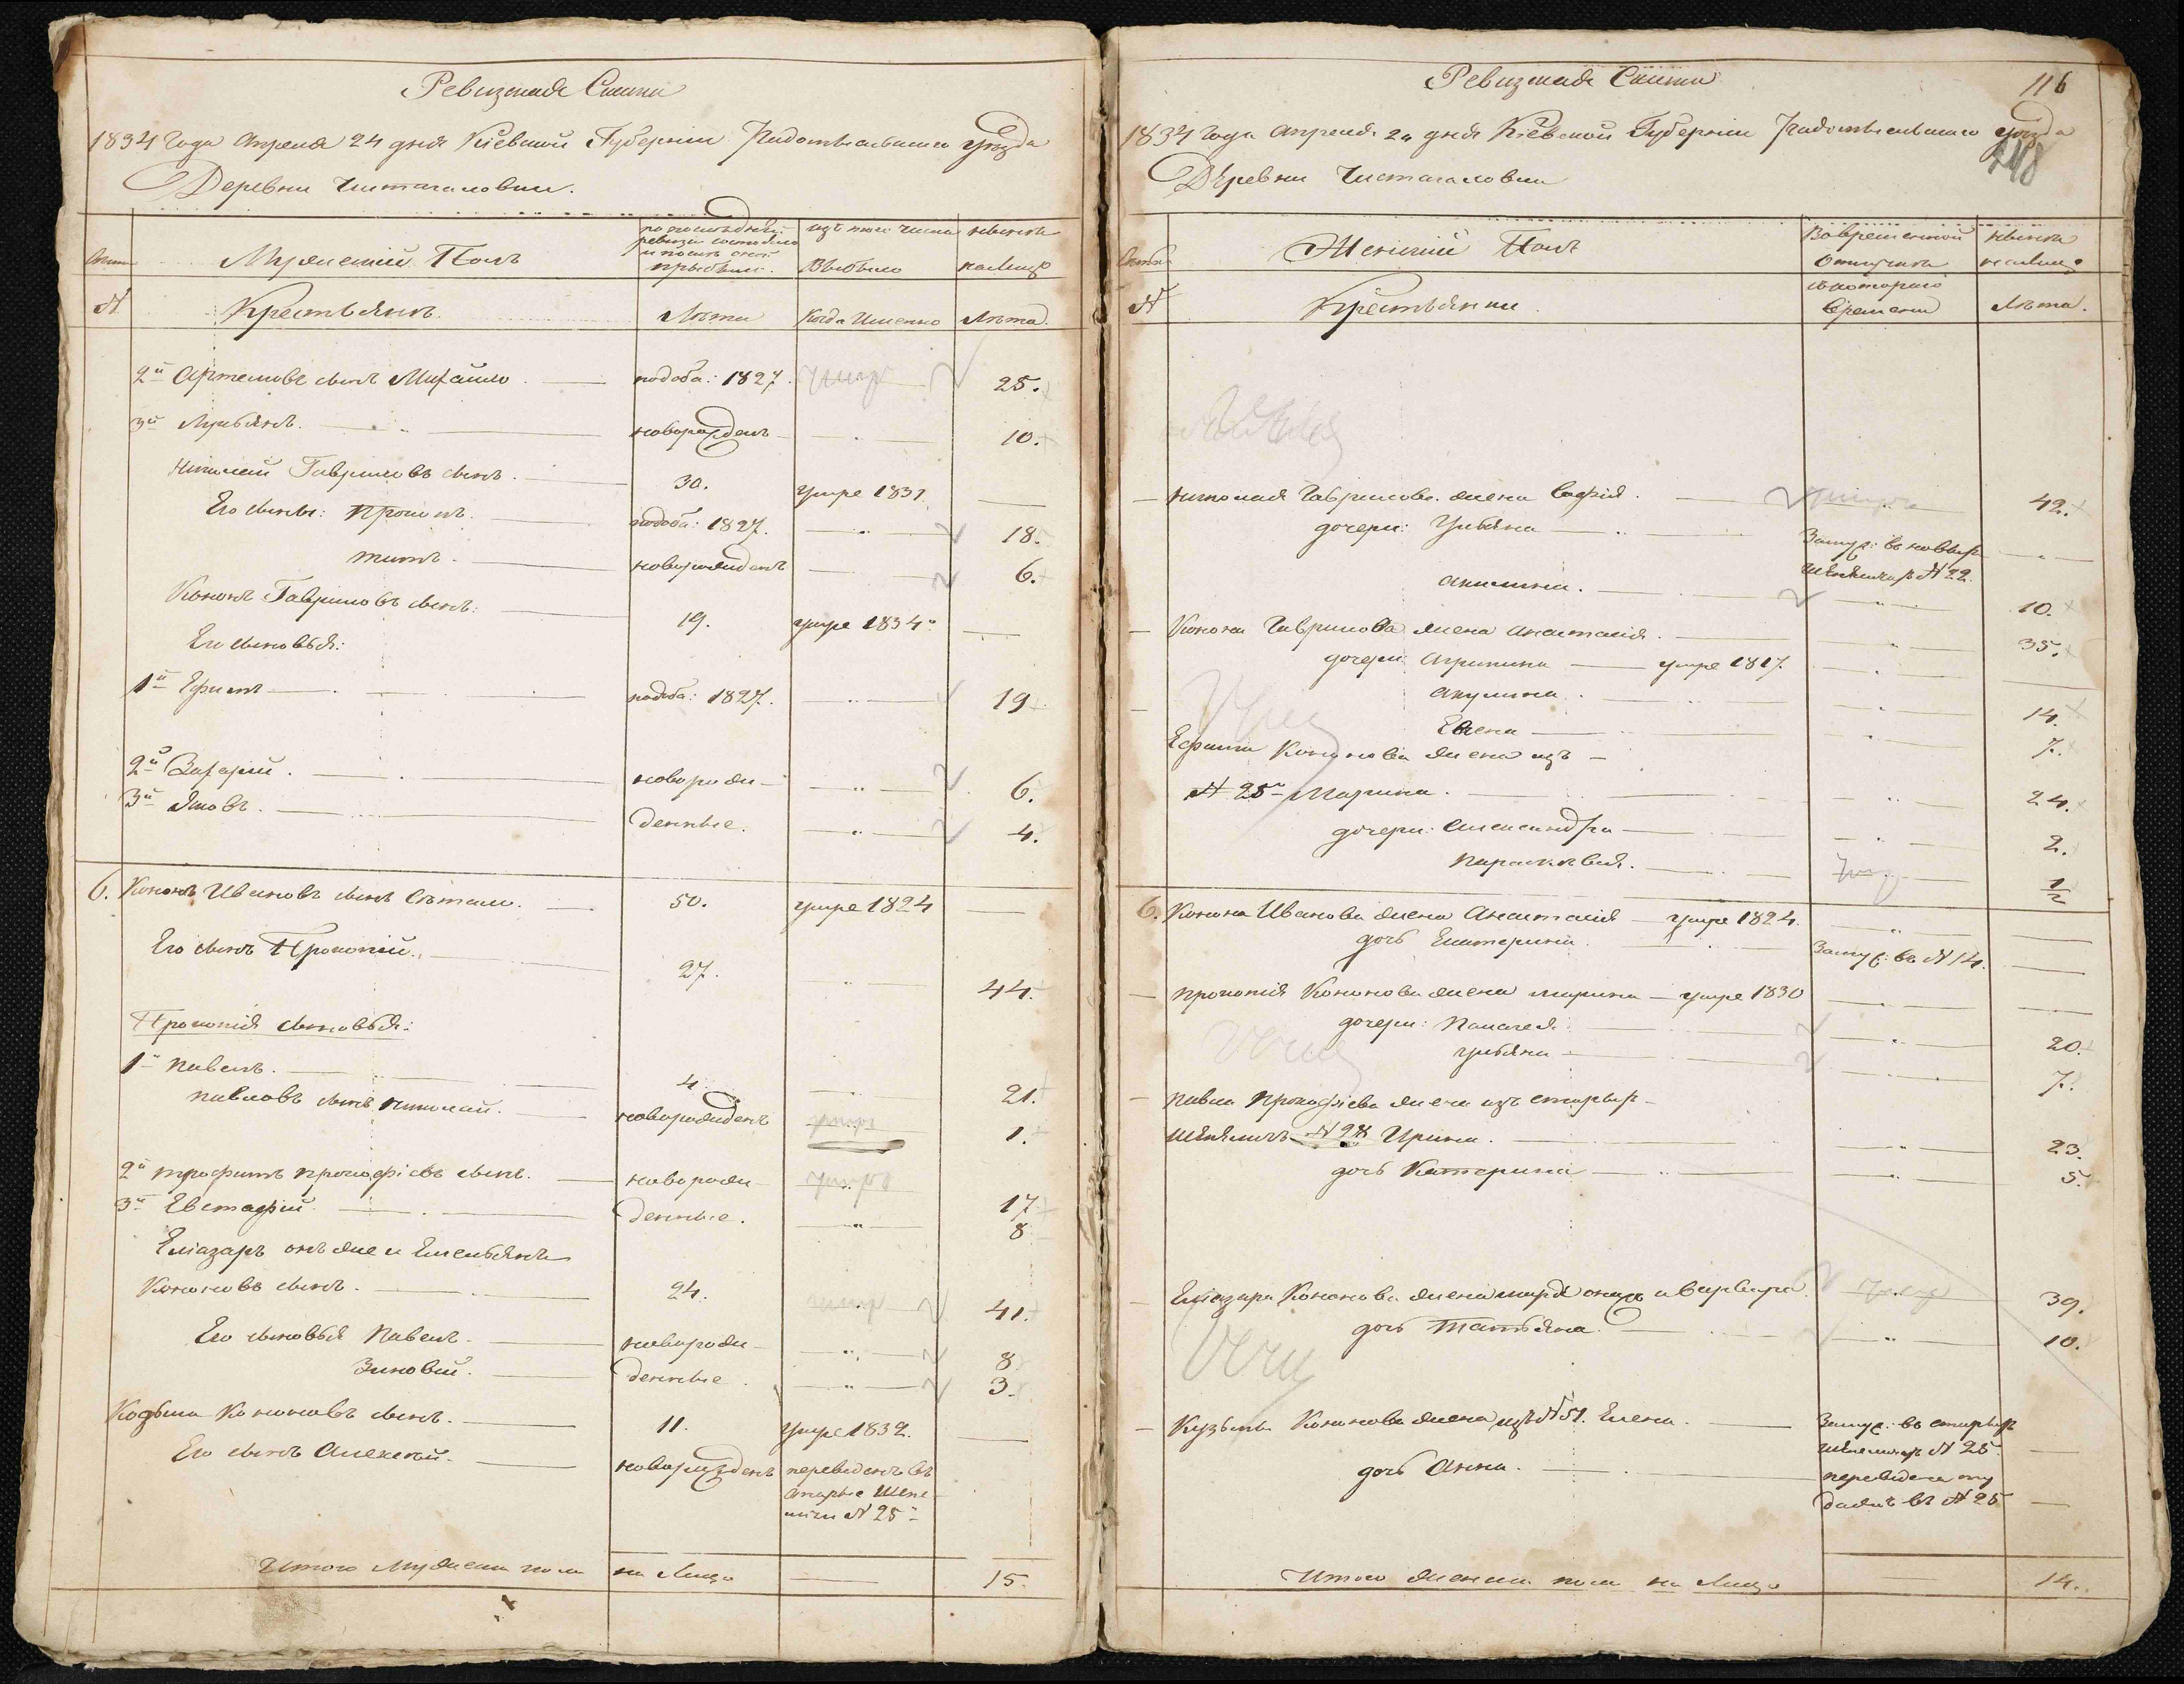 Ревизская Сказка
1834 Года Апреля 24 дня Киевской Губернии Радомысльского уезда
Деревни Чистагаловки.
по последней ревизии состояло и после оной прибыли.
изъ того числа Выбыло
ныне на лицо
Мужеский Полъ
№
Крестьянъ.
Лета
Когда Именно
Лета.
2й Артемовъ сынъ Михайло. подоба: 1827. умре 25.
3й Лукьянъ. новорожденъ 10.
Николай Гавриловъ сынъ. 30. умре 1831
Его сыны: Прокопъ. подоба: 1827. 18.
Титъ. новорожденъ 6.
Кононъ Гавриловъ сынъ: 19. умре 1834го
Его сыновья:
1й Ефимъ подоба: 1827. 19
2й Захарий. новорож- 6.
3й Яковъ. денные. 4.
6. Кононъ Ивановъ сынъ 50. умре 1824
Его сынъ Прокопий. 27. 44.
Прокопия сыновья:
1й Павелъ. 4. 21.
Павловъ сынъ Николай. новорожденъ умре 1.
2й Трофимъ Прокофиевъ сынъ. новорож- умре 17
3й Евстафий. денные. 8
Елиазаръ онъ же и Емельянъ
Кононовъ сынъ. 24. умре 41.
Его сыновья Павелъ. новорож- 8
Зиновий. денные. 3.
Козьма Кононовъ сынъ. 11. умре 1832.
Его сынъ Алексей. новорожденъ переведенъ въ
старые Шепе-
личи № 25й
Итого Мужеска пола на Лицо 15.
Ревизская Сказка
116
1834 Года Апреля 24 дня Киевской Губернии Радомысльского уезда
248
Деревни Чистагаловки
Женский Полъ
Во временной отлучке
ныне на лицо
№
Крестьянки.
съ которого времени
Лета.
Николая Гаврилова жена София. умре 42.
дочери: Ульяна Замуж: въ новыхъ
Шепеличахъ № 22.
Акилина. 10.
Конона Гаврилова жена Анастасия. 35.
дочери: Агрипина умре 1817.
Акулина. 14.
Елена 7.
Ефима Кононова жена изъ
№ 25го Марина. 24.
дочери: Александра 2.
Парасковия. 1/2
6. Конона Иванова жена Анастасия умре 1824.
дочь Екатерина. Замуж: въ № 14.
Прокопия Кононова жена Марина умре 1830
дочери: Палагея 20.
Ульяна 7.
Павла Прокофиева жена изъ старыхъ
Шепеличъ № 28 Ирина. 23.
дочь Катерина 5.
Елиазара Кононова жена Марья онажъ и Варвара. умре 39.
дочь Татьяна. 10.
Кузьмы Кононова жена изъ № 51. Елена. Замуж: въ старыхъ
Шепеличахъ № 25
дочь Анна. переведена ту
даже въ № 25
Итого женска пола на Лицо 14.